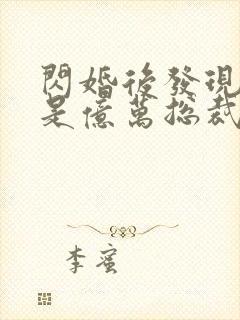 閃婚後發現
是億萬總裁
李蜜